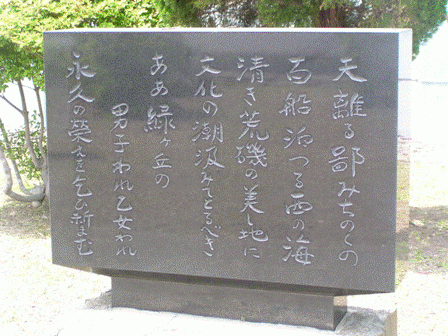 天離る鄙みちのくの
百船泊つる西の海
清き荒磯の美し地に
文化の潮汲みてとるべき
ああ緑ヶ丘の
男子われ乙女われ
永久の榮えを乞ひ祈まむ